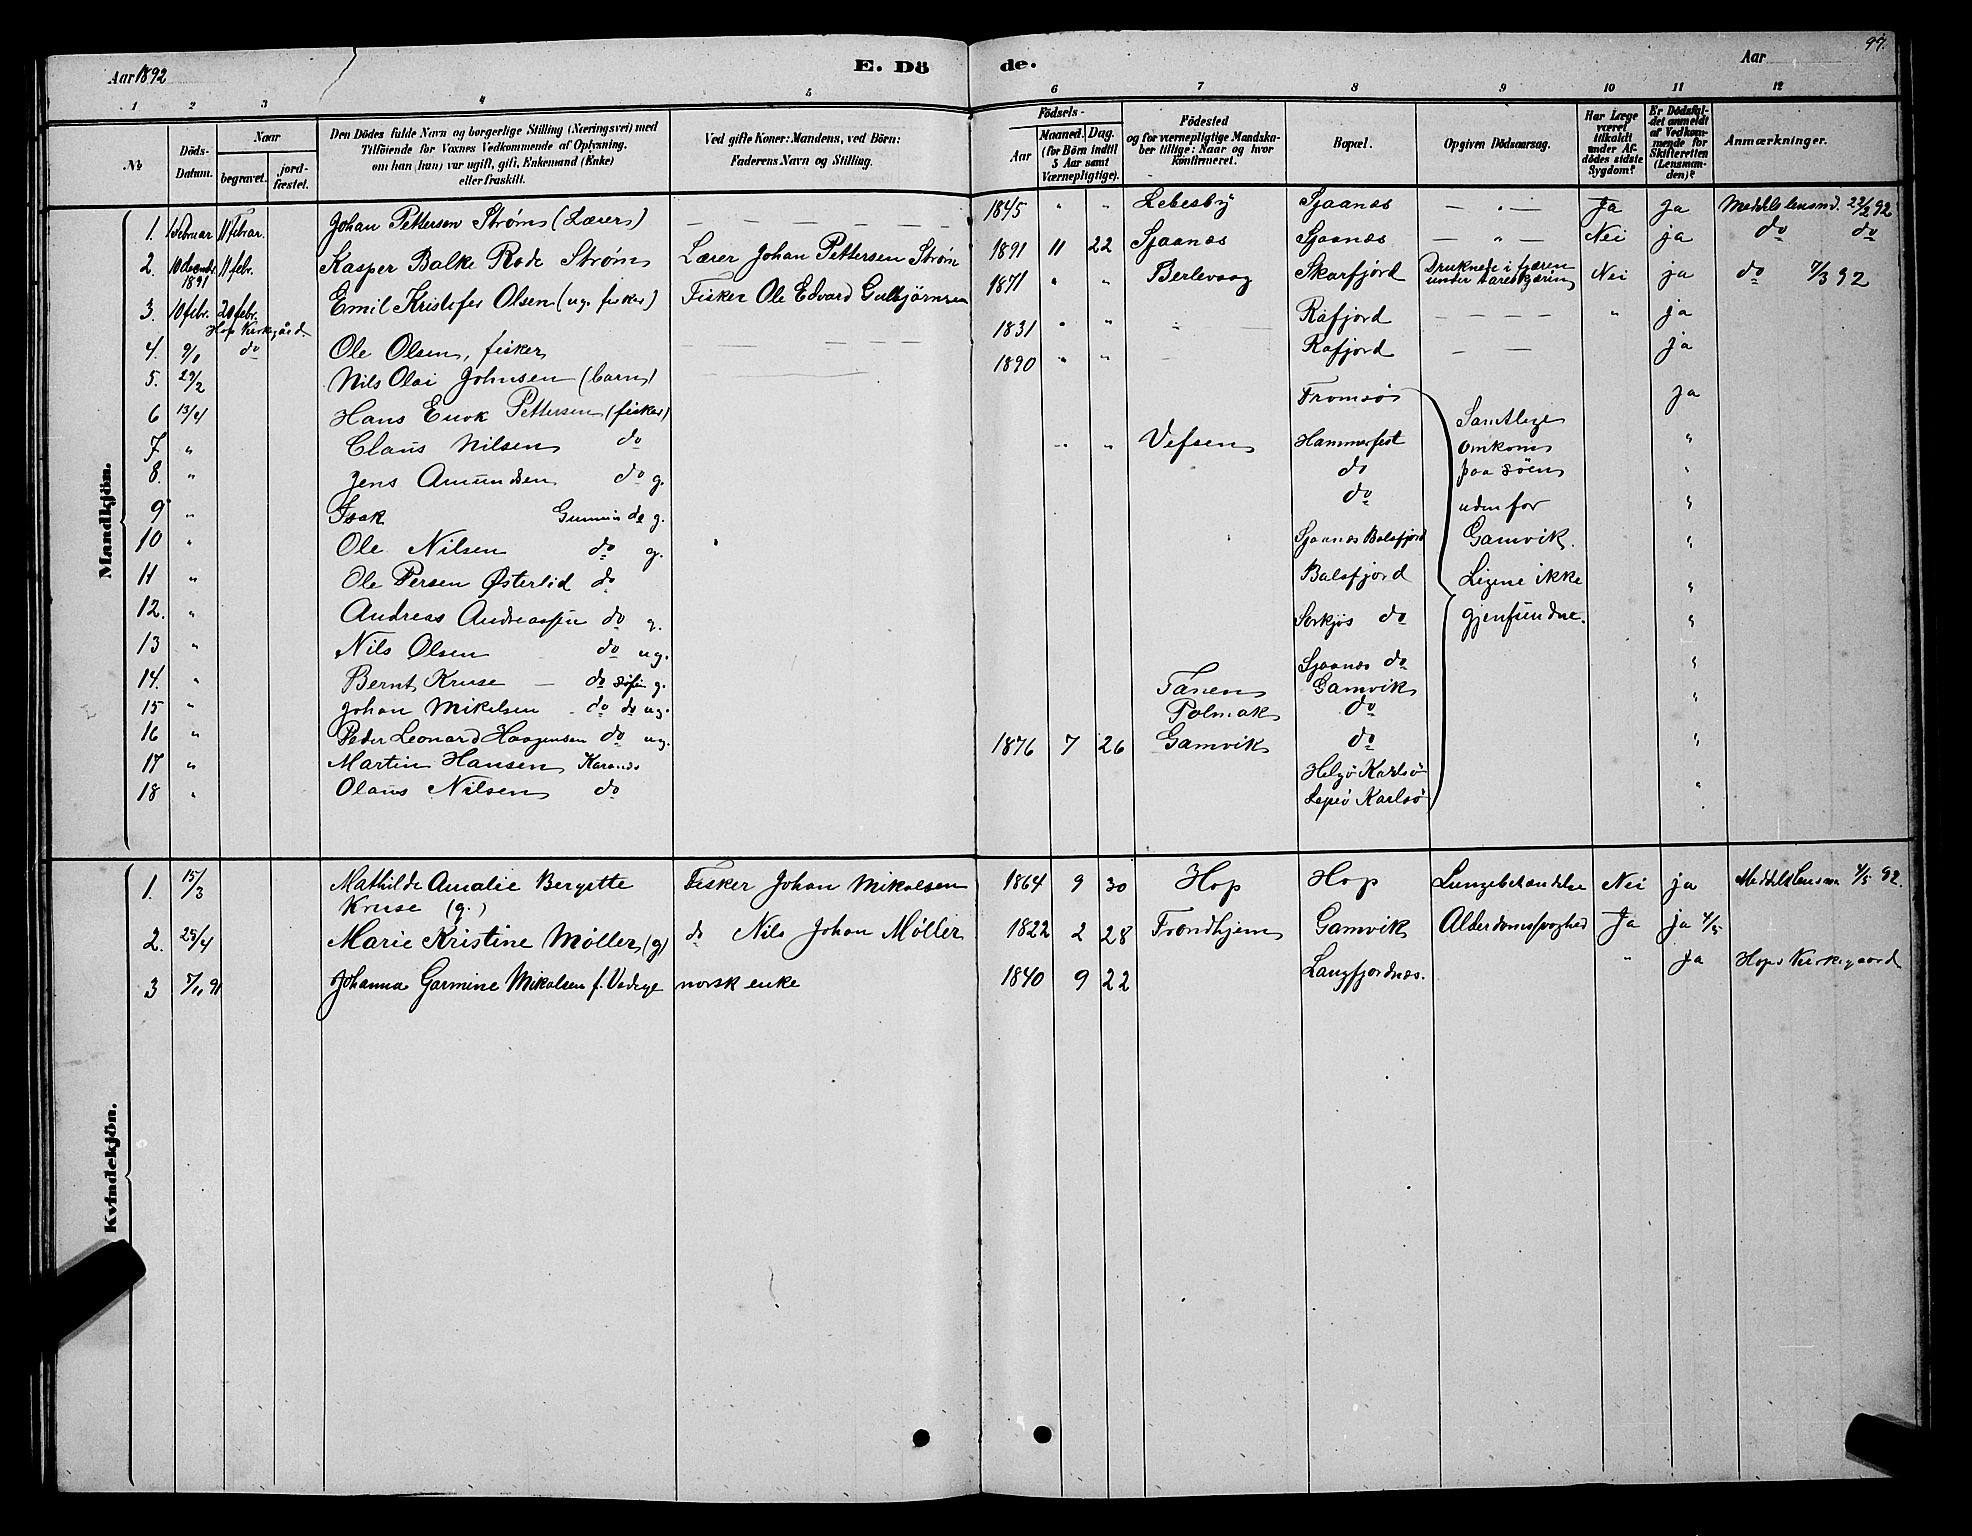 Aar 1892 E. Dö de. Aar 97.
1 2 3 4 5 6 7 8 9 10 11 12
№ Döds-Datum. Naar begravet. jord-fæstet. Den Dödes fulde Navn og borgerlige Stilling (Næringsvei) med Tilföiende for Voxnes Vedkommende af Oplysning, om han (hun) var ugift, gift, Enkemand (Enke) eller fraskilt. Ved gifte Koner: Mandens, ved Börn: Faderens Navn og Stilling. Födsels- Aar Maaned. Dag. (for Börn indtil 5 Aar samt Værnepligtige). Födested og for værnepligtige Mandskaber tillige: Naar og hvor Konfirmeret. Bopæl. Opgiven Dödsaarsag. Har Læge været tilkaldt under Afdödes sidste Sygdom? Er Dödsfaldet anmeldt af Vedkommende for Skifteretten (Lensmanden)? Anmærkninger.
Mandkjön.
1. 11 febuar. Johan Pettersen Strøm (Lærer) — — — 1845 " " Lebesby Sjaanæs — " — Ja Ja Meddelt lensmd. 22/2 92
2. 10 1891 11 febr. Kasper Balke Rode Strøm Lærer Johan Pettersen Strøm 1891 11 22 Sjaanæs Sjaanæs — " — Nei ja do do
3. 10 febr. 20 febr. Hop Kirkegård Emil Kristofer Olsen (ug. fisker) Fisker Ole Edvard 1871 " " Berlevaag Skarfjord Druknede i fjæren under Nei ja do 7/3 92
4. do Ole Olsen, fisker — — — 1831 " " Rafjord — — — " ja
5. 29/2 Nils Olai Johnsen (barn) 1890 " " Rafjord — — ja
6 13/4 Hans Enok Pettersen (fisker) Tromsø Samtlige ja
7 " Claus Nilsen do " " Vefsen Hammerfest omkom "
8. " Jens Amundsen do g. do paa søen "
9 " Isak do g. do udenfor "
10 " Ole Nilsen do g. Sjaanæs Balsfjord Gamvik. "
11 " Ole Persen Østerlid do Balsfjord Ligene ikke "
12. " Andreas Andreassen do g. Sørkjos do gjenfundne. "
13 " Nils Olsen do ug. Sjaanæs do "
14. " Bernt Kruse — do g. Tanen Gamvik
15 " Johan Mikelsen do ug. Polmak do "
16 " Peder Leonard Haagensen do ug. 1876 7 26 Gamvik do "
17 " Martin Hansen Helgø Karlsø
18 " Olaus Nilsen do Karlsø "
Kvindekjön.
1. 15/3 Mathilde Amalie Bergette Kruse (g.) Fisker Johan Mikalsen 1864 9 30 Hop Hop Lungebetændelse Nei ja Meddelt 4/5 92.
2. 25/4 Marie Kristine Møller (g) do Nils Johan Møller 1822 2 28 Trondhjem Gamvik Alderdomssvaghed Ja ja 4/5
3 5/10 91 Johanna Garmine Mikalsen f. norsk enke 1840 9 22 Langfjordnæs. " Ja Hops Kirkegaard